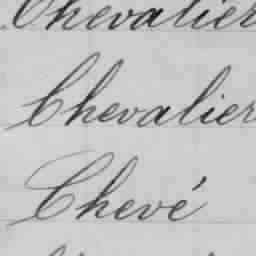 Chevalier
Chevalier
Chevé